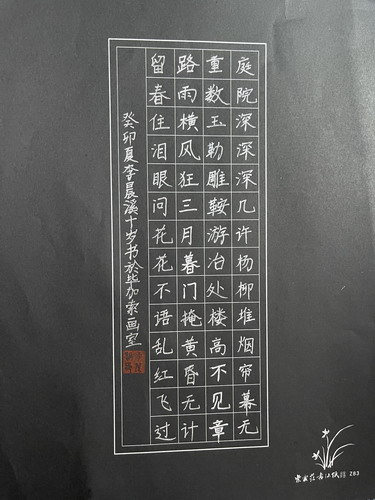 庭院深深深几许杨柳堆烟帘幕无
重数玉勒雕鞍游冶处楼高不见章
路雨横风狂三月暮门掩黄昏无计
留春住泪眼问花花不语乱红飞过
癸卯夏李晨溪十岁书於毕加索画室